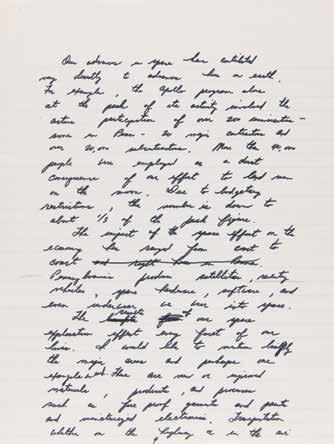 Our advances in space have contributed
very directly to advances here on earth.
For example, the Apollo program alone
at the peak of its activity involved the
active participation of over 200 universities -
some in Penn - 20 major contractors and
over 20,000 subcontractors. More than
people were employed as a direct
consequence of our effort to land men
on the moon. Due to budgetary
restrictions, the number is down to
about 1/3 of the peak figure.
The impact of the space effort on the
economy has ranged from coast to
coast and right here in Penna.
Pennsylvania produces satellites, reentry
vehicles, space hardware, software, and
even underwear we use into space.
The benefits from our space
exploration effort every facet of our
lives. I would like to mention briefly
the major areas and perhaps one
example. There are new or improved
materials, products and processes
such as fire proof garments and paints
and miniaturized electronics. Transportation
whether on the highway or in the air